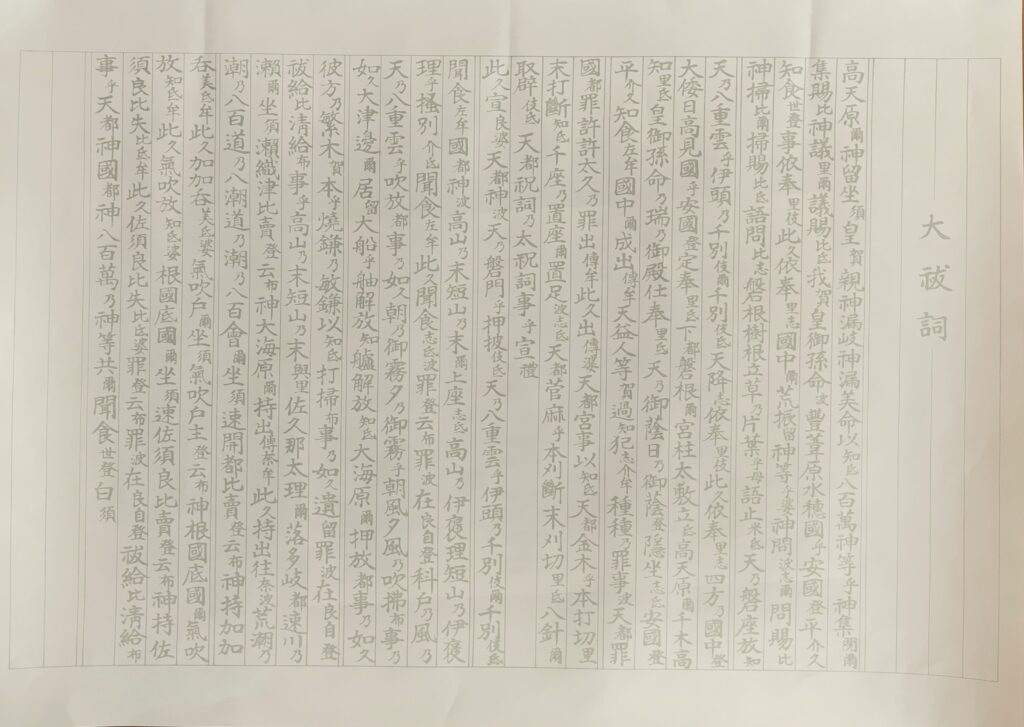 大祓詞
高天原爾神留坐須皇賀親神漏岐神漏美命以知氐八百萬神等乎神集閉爾
集賜比神議里爾議賜比氐我賀皇御孫命波豐葦原水穗國乎安國登平介久
知食世登事依奉里伎此久依奉里志國中爾荒振留神等乎婆神問波志爾問賜比
神掃比爾掃賜比氐語問比志磐根樹根立草乃片葉乎母語止米氐天乃磐座放知
天乃八重雲乎伊頭乃千別伎爾千別伎氐天降志依奉里伎此久依奉里志四方乃國中登
大倭日高見國乎安國登定奉里氐下都磐根爾宮柱太敷立氐高天原爾千木高
知里氐皇御孫命乃瑞乃御殿仕奉里氐天乃御蔭日乃御蔭登隱坐志氐安國登
平介久知食左牟國中爾成出傳牟天益人等賀過知犯志介牟種種乃罪事波天都罪
國都罪許許太久乃罪出傳牟此久出傳婆天都宮事以知氐天都金木乎本打切里
末打斷知氐千座乃置座爾置足波志氐天都菅麻乎本刈斷末刈切里氐八針爾
取辟伎氐天都祝詞乃太祝詞事乎宣禮
此久宣良婆天都神波天乃磐門乎押披伎氐天乃八重雲乎伊頭乃千別伎爾千別伎氐
聞食左牟國都神波高山乃末短山乃末爾上座志氐高山乃伊褒理短山乃伊褒
理乎搔別介氐聞食左牟此久聞食志氐波罪登云布罪波在良自登科戶乃風乃
天乃八重雲乎吹放都事乃如久朝乃御霧夕乃御霧乎朝風夕風乃吹拂布事乃
如久大津邊爾居留大船乎舳解放知艫解放知氐大海原爾押放都事乃如久
彼方乃繁木賀本乎燒鎌乃敏鎌以知氐打掃布事乃如久遺留罪波在良自登
祓給比淸給布事乎高山乃末短山乃末與里佐久那太理爾落多岐都速川乃
瀨爾坐須瀨織津比賣登云布神大海原爾持出傳奈牟此久持出往奈波荒潮乃
潮乃八百道乃八潮道乃潮乃八百會爾坐須速開都比賣登云布神持加加
吞美氐牟此久加加吞美氐婆氣吹戶爾坐須氣吹戶主登云布神根國底國爾氣吹
放知氐牟此久氣吹放知氐婆根國底國爾坐須速佐須良比賣登云布神持佐
須良比失比氐牟此久佐須良比失比氐婆罪登云布罪波在良自登祓給比淸給布
事乎天都神國都神八百萬乃神等共爾聞食世登白須